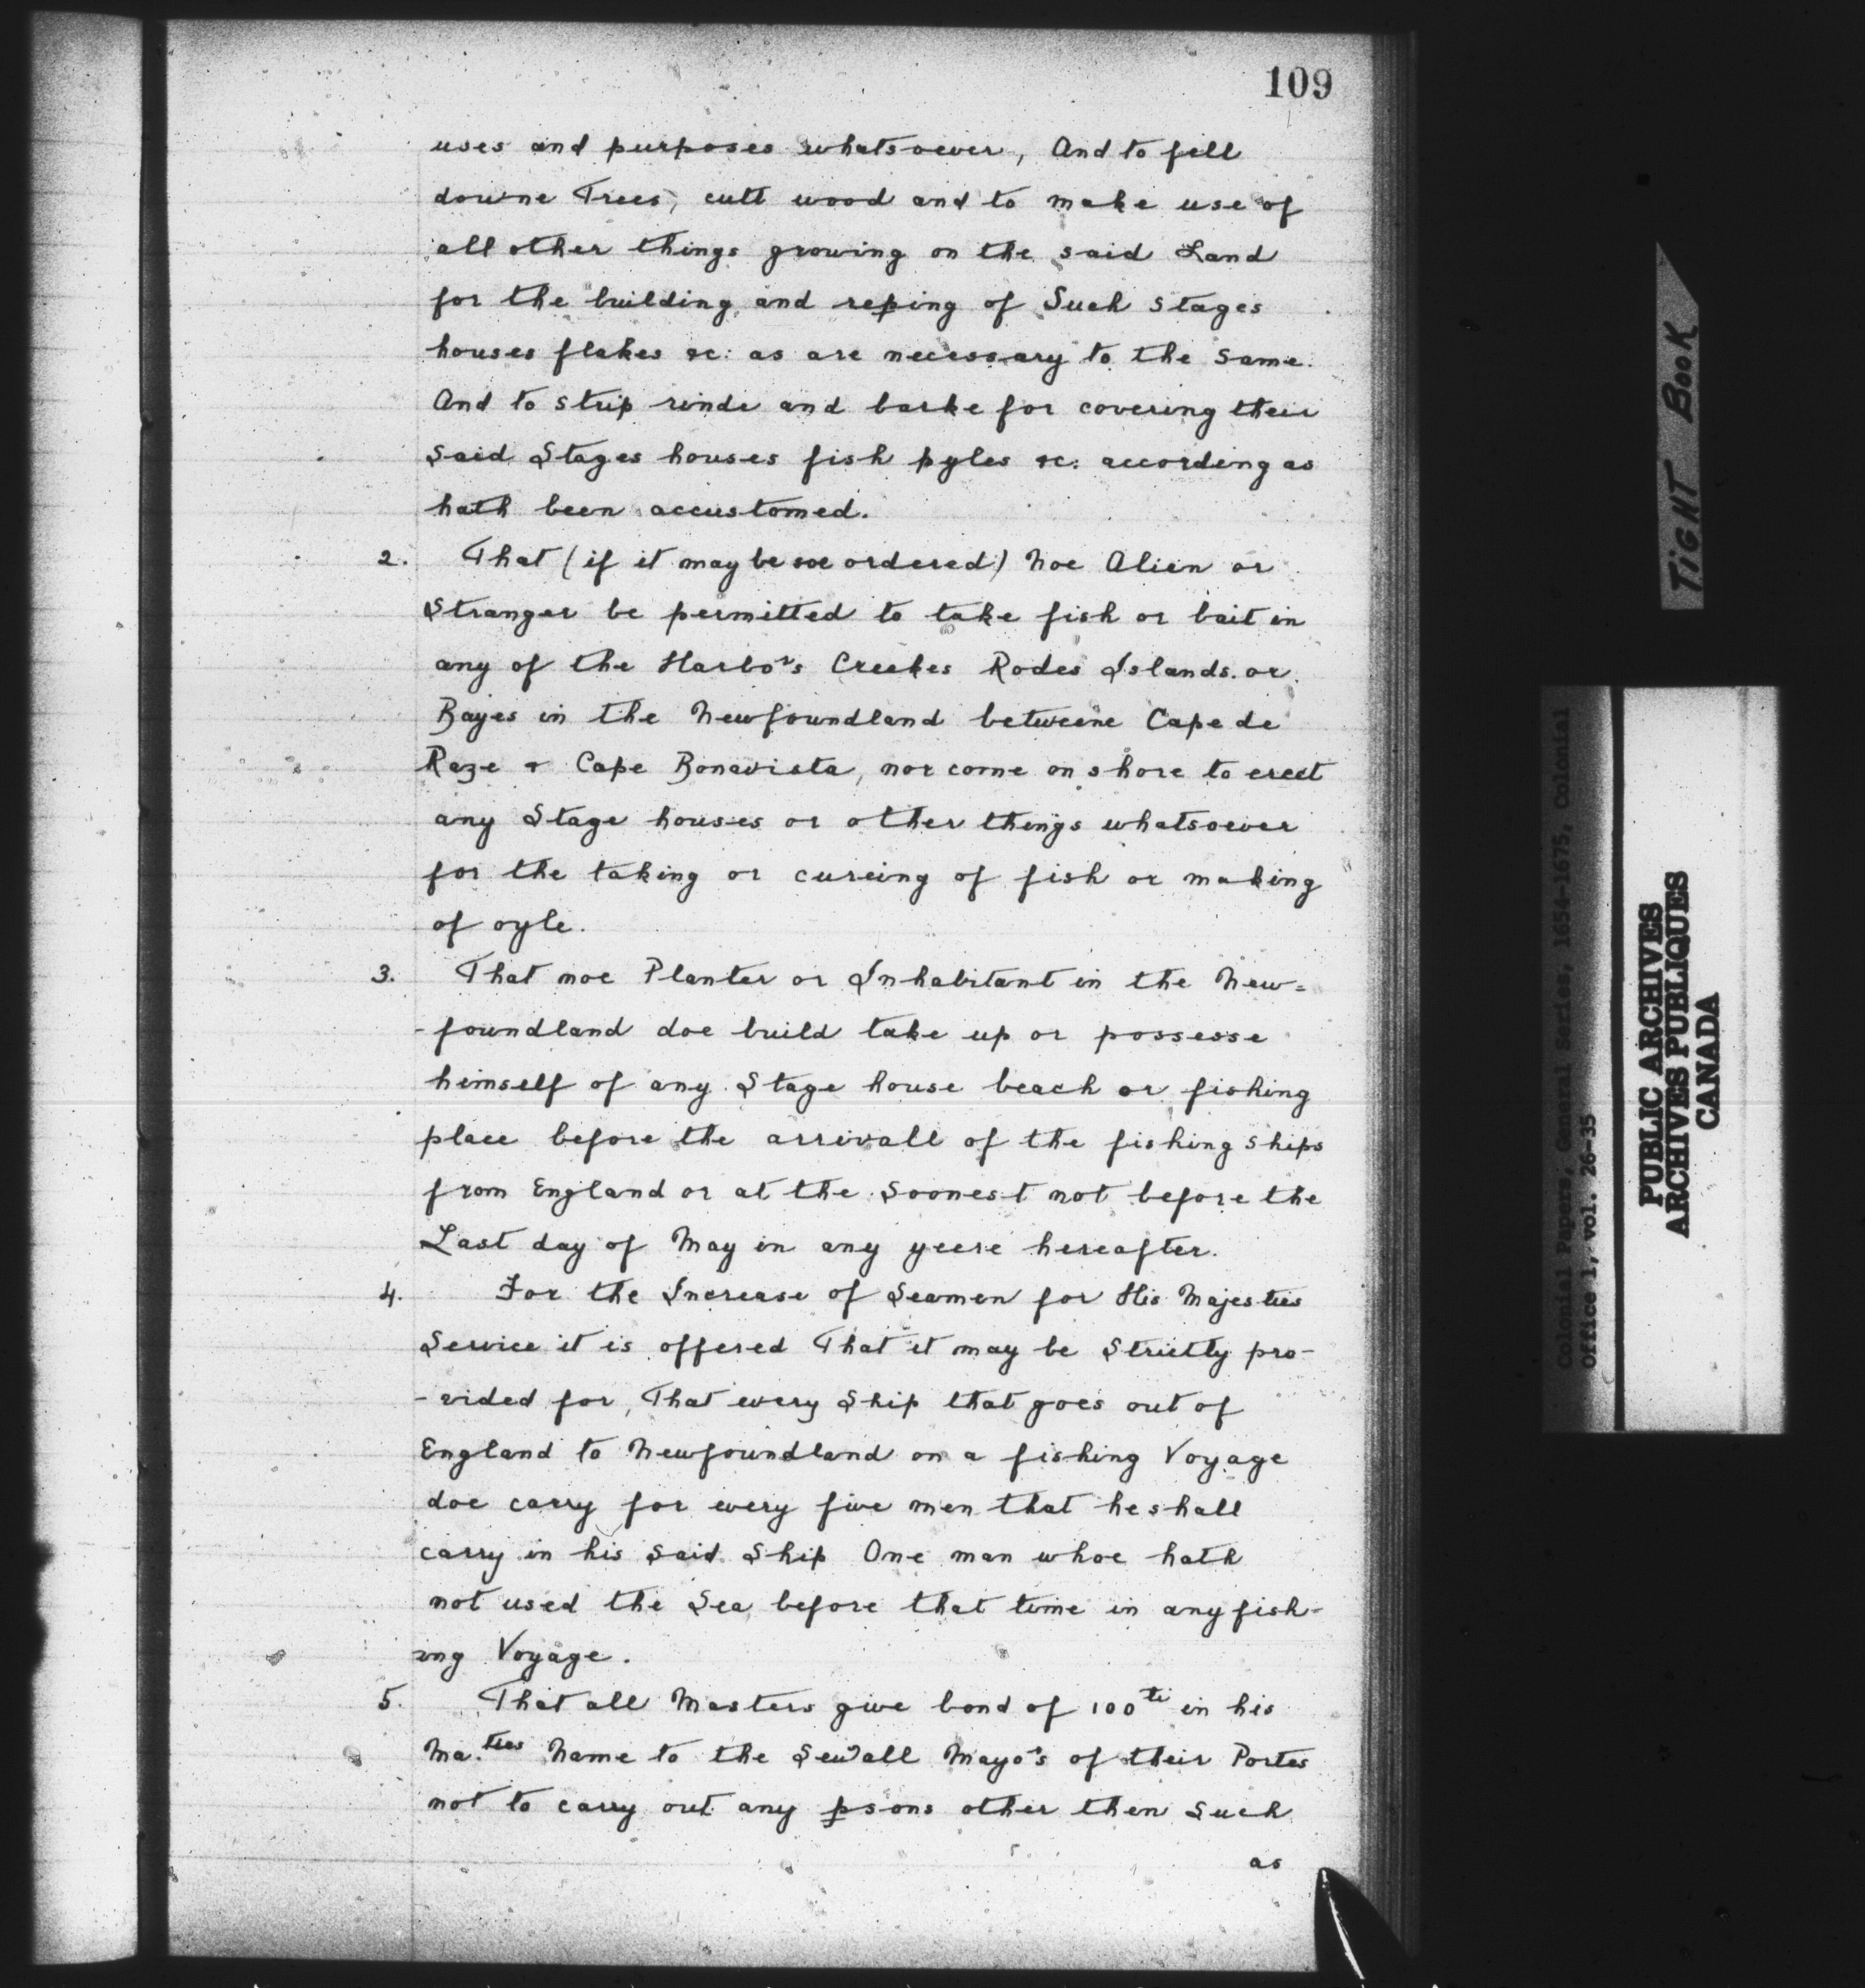 109
uses and purposes whatsoever, And to fell
downe Trees, cutt wood and to make use of
all other things growing on the said Land
for the building and reping of Such stages
houses flakes &c: as are necessary to the same.
And to strip rinde and barke for covering their
Said Stages houses fish pyles &c: according as
hath been accustomed.
2. That (if it may be soe ordered) Noe Alien or
Stranger be permitted to take fish or bait in
any of the Harbo^rs Creekes Rodes Islands or
Bayes in the Newfoundland betweene Cape de
Raze & Cape Bonavista, nor come on shore to erect
any Stage houses or other things whatsoever
for the taking or cureing of fish or making
of oyle.
3. That noe Planter or Inhabitant in the New=
-foundland doe build take up or possesse
himself of any Stage house beach or fishing
place before the arrivall of the fishing ships
from England or at the Soonest not before the
Last day of May in any yeere hereafter.
4. For the Increase of Seamen for His Majesties
Service it is offered That it may be Strictly pro-
-vided for, That every Ship that goes out of
England to Newfoundland on a fishing Voyage
doe carry for every five men that he shall
carry in his Said Ship One man whoe hath
not used the Sea before that time in any fish-
ing Voyage.
5. That all Masters give bond of 100^li in his
Ma.^ties Name to the Sev̄all Mayo^rs of their Portes
not to carry out any psons other then Such
as
TIGHT BOOK
Colonial Papers, General Series, 1654-1675, Colonial
Office 1, vol. 26-35
PUBLIC ARCHIVES
ARCHIVES PUBLIQUES
CANADA